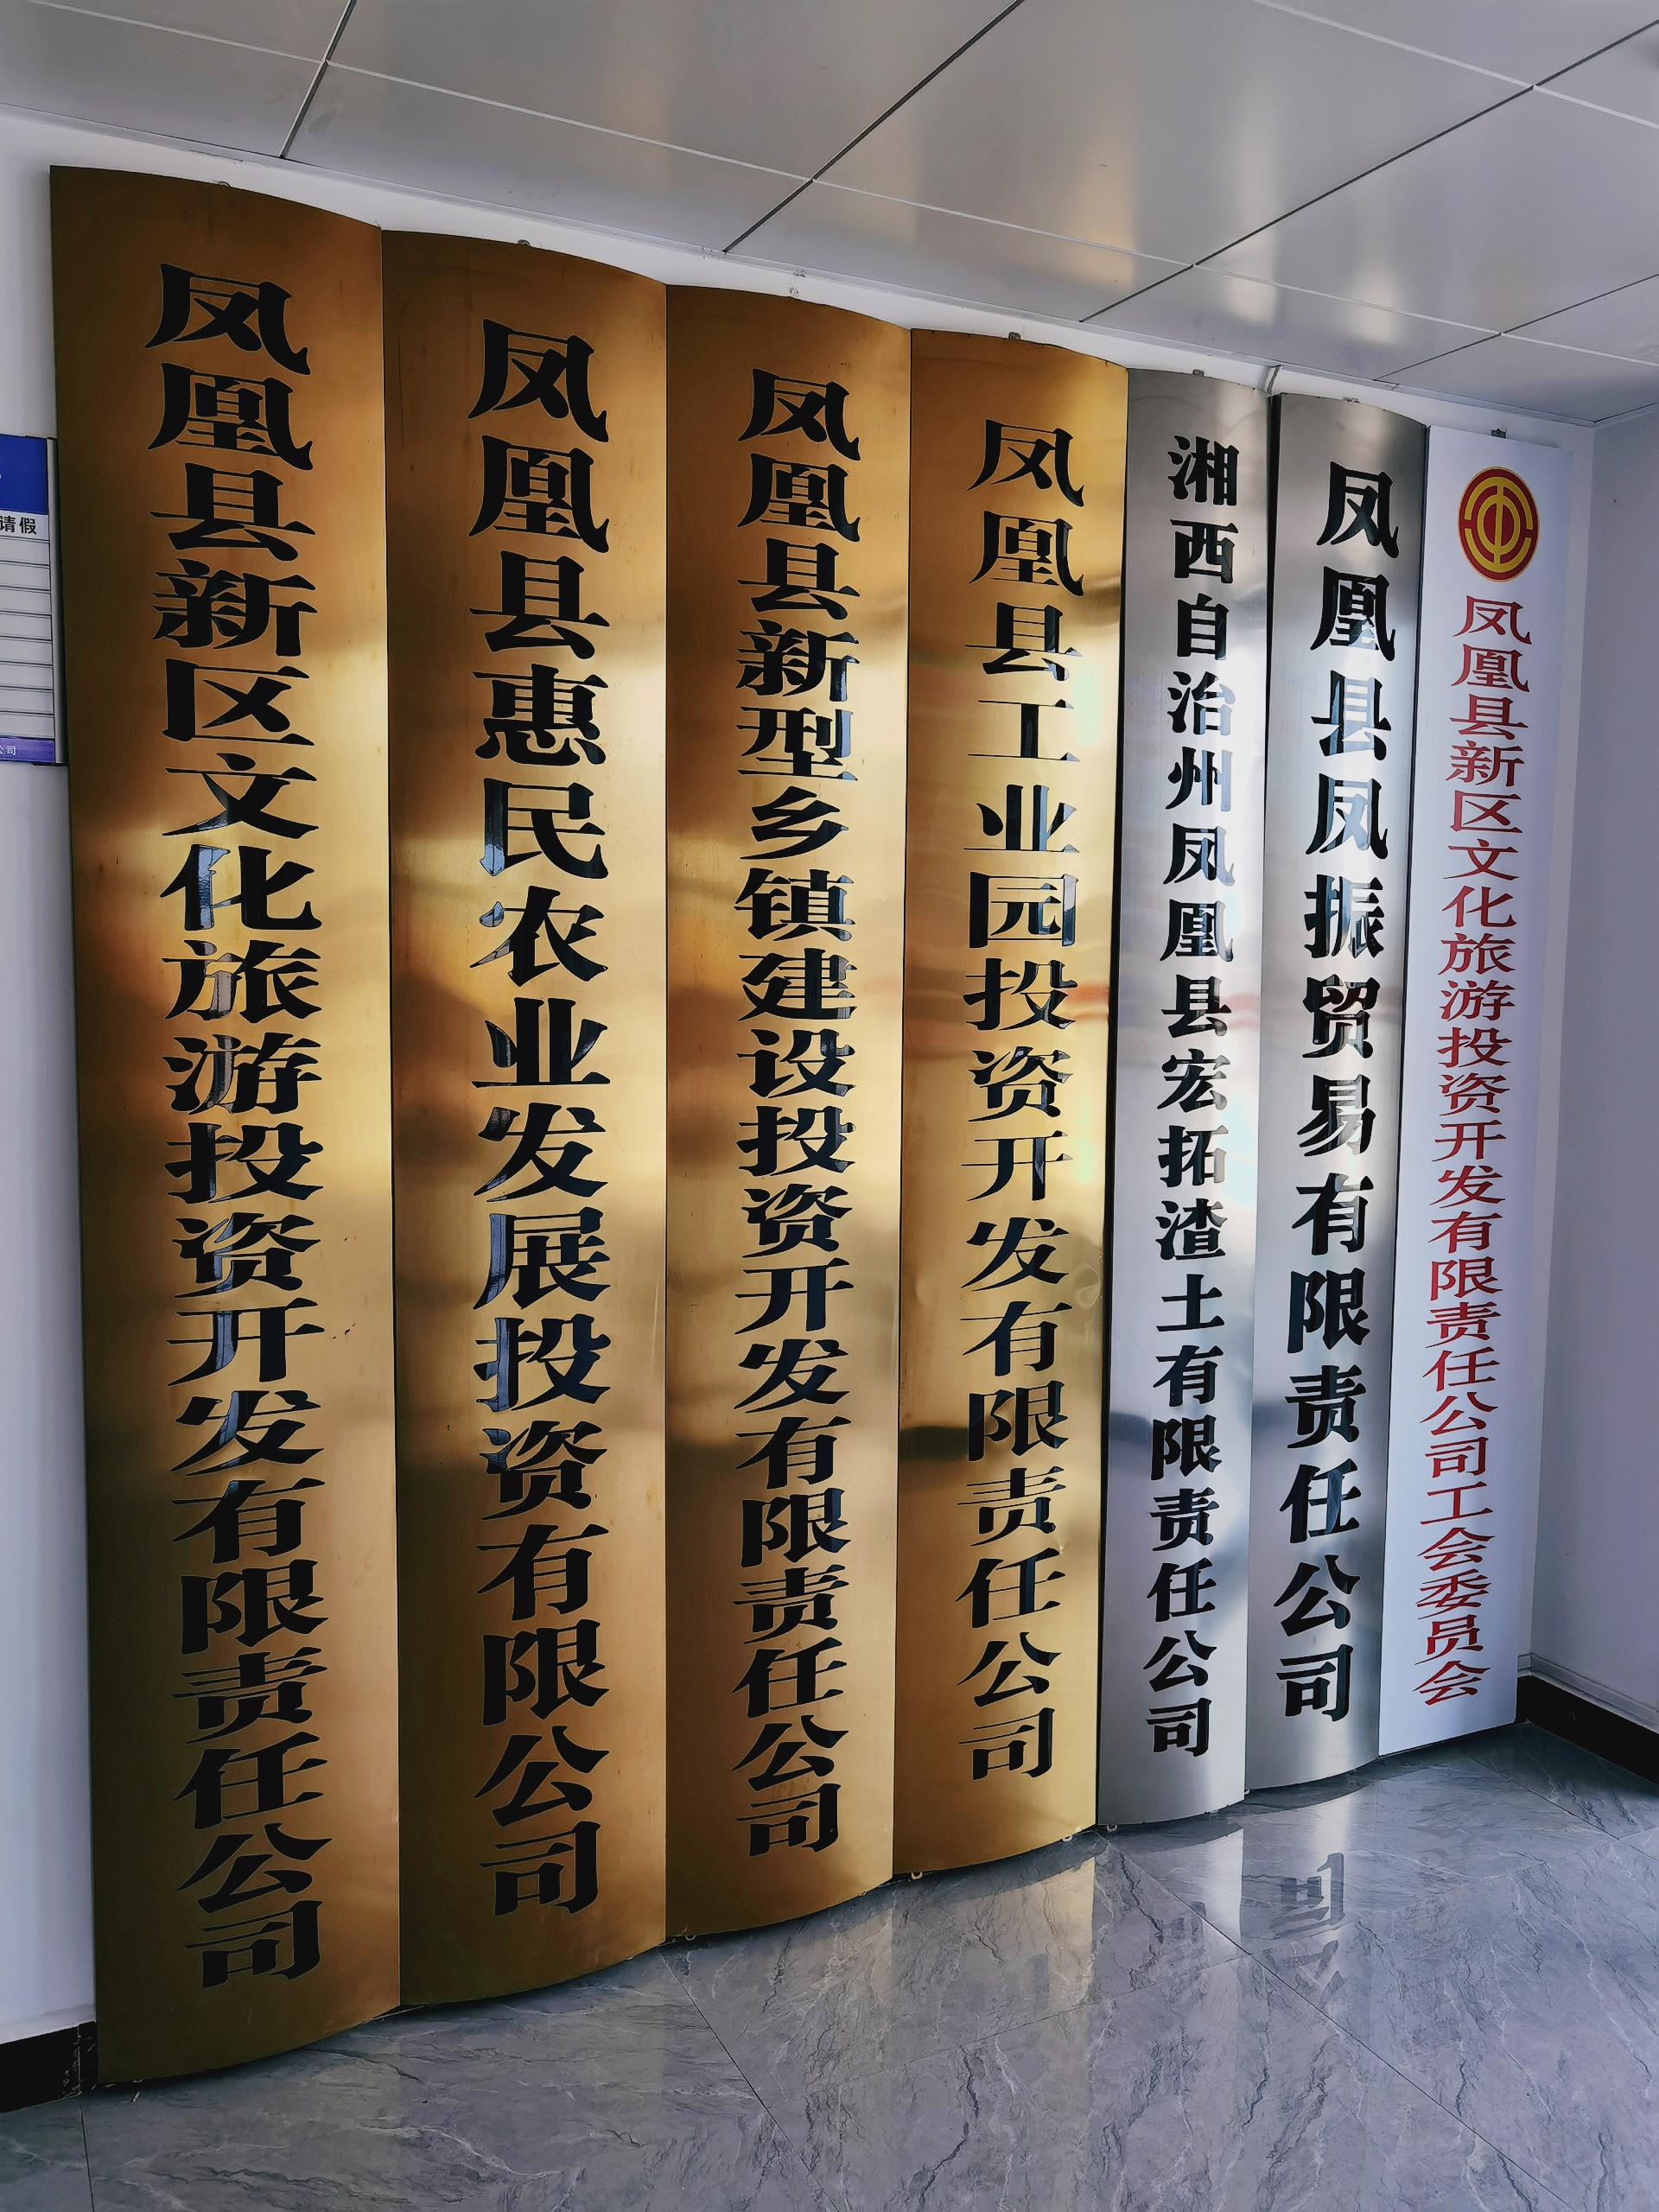 请假
公司
凤凰县新区文化旅游投资开发有限责任公司
凤凰县惠民农业发展投资有限公司
凤凰县新型乡镇建设投资开发有限责任公司
凤凰县工业园投资开发有限责任公司
湘西自治州凤凰县宏拓渣土有限责任公司
凤凰县凤振贸易有限责任公司
凤凰县新区文化旅游投资开发有限责任公司工会委员会